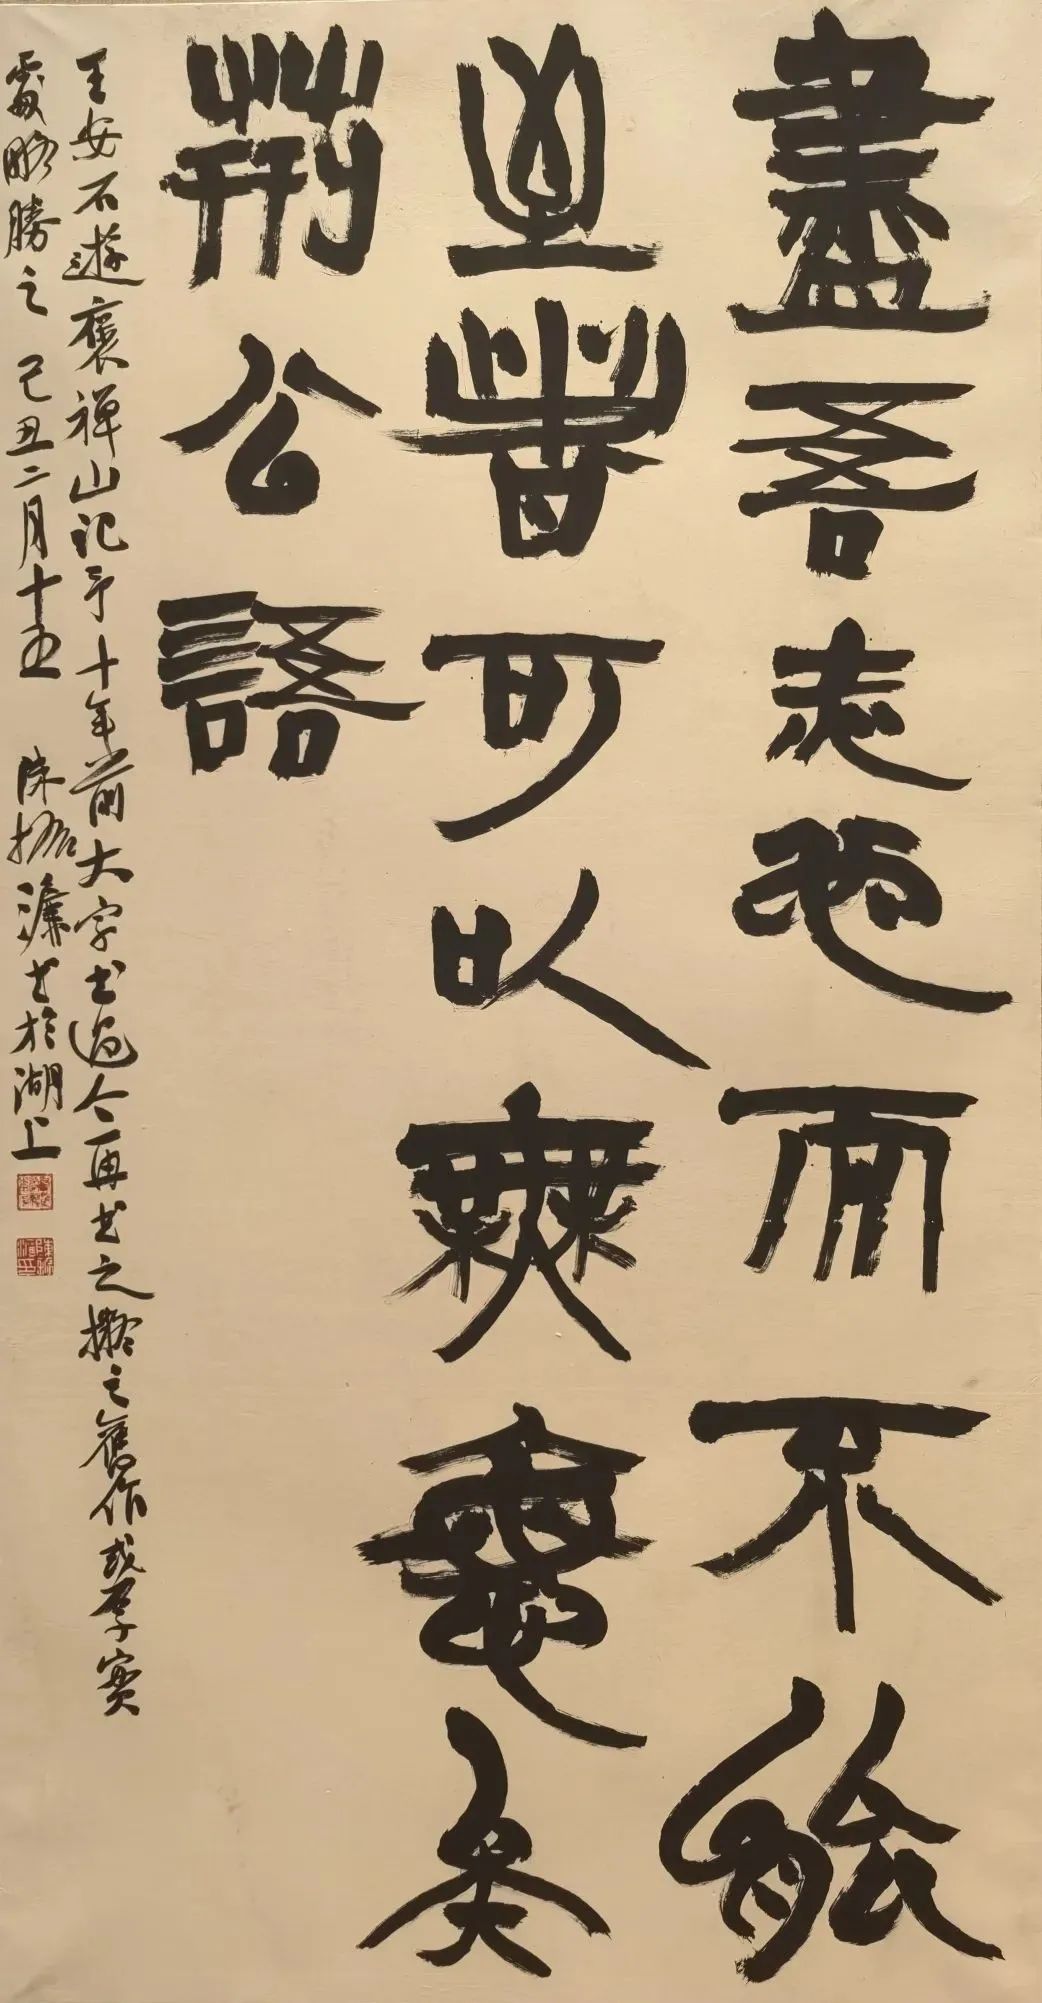 盡吾志也而不能
至者可以無悔矣
荊公語
王安石遊褒禅山记予十年前大字书过今再书之擬之舊作或厚實
處略勝之 己丑二月十五 陈振濂书於湖上